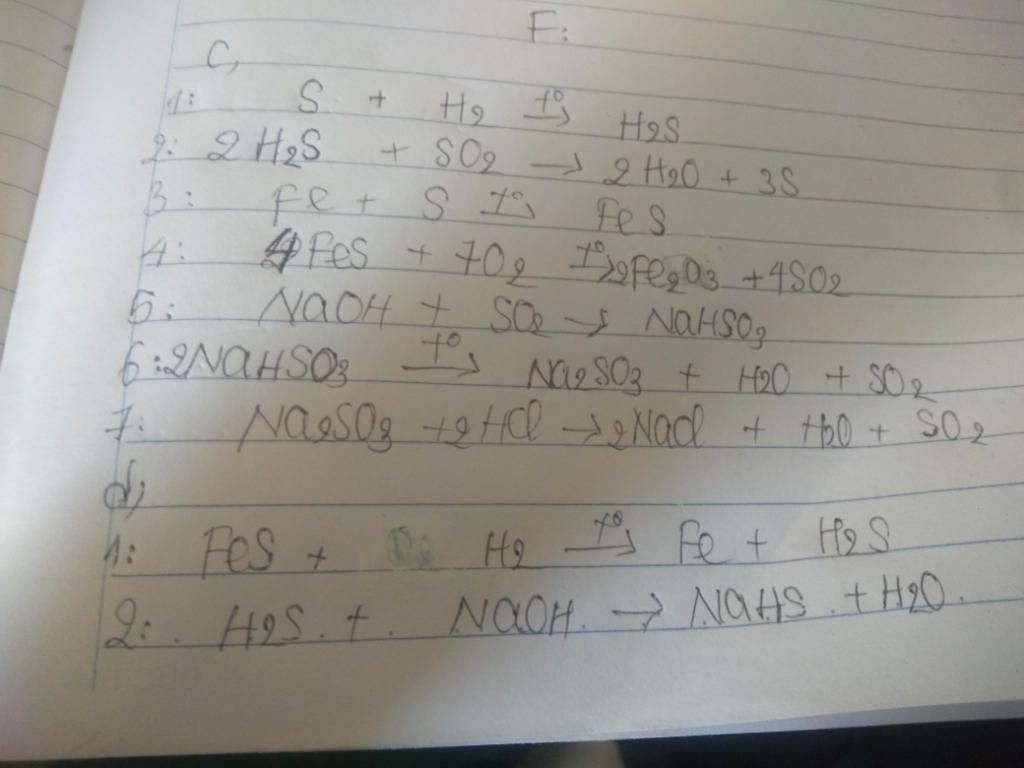 F:
C,
1: S + H2 t°→ H2S
2: 2H2S + SO2 → 2H2O + 3S
3: Fe + S t°→ FeS
4: 4FeS + 7O2 t°→ 2Fe2O3 + 4SO2
5: NaOH + SO2 → NaHSO3
6: 2NaHSO3 t°→ Na2SO3 + H2O + SO2
7: Na2SO3 + 2HCl → 2NaCl + H2O + SO2
d,
1: FeS + H2 t°→ Fe + H2S
2: H2S + NaOH → NaHS + H2O